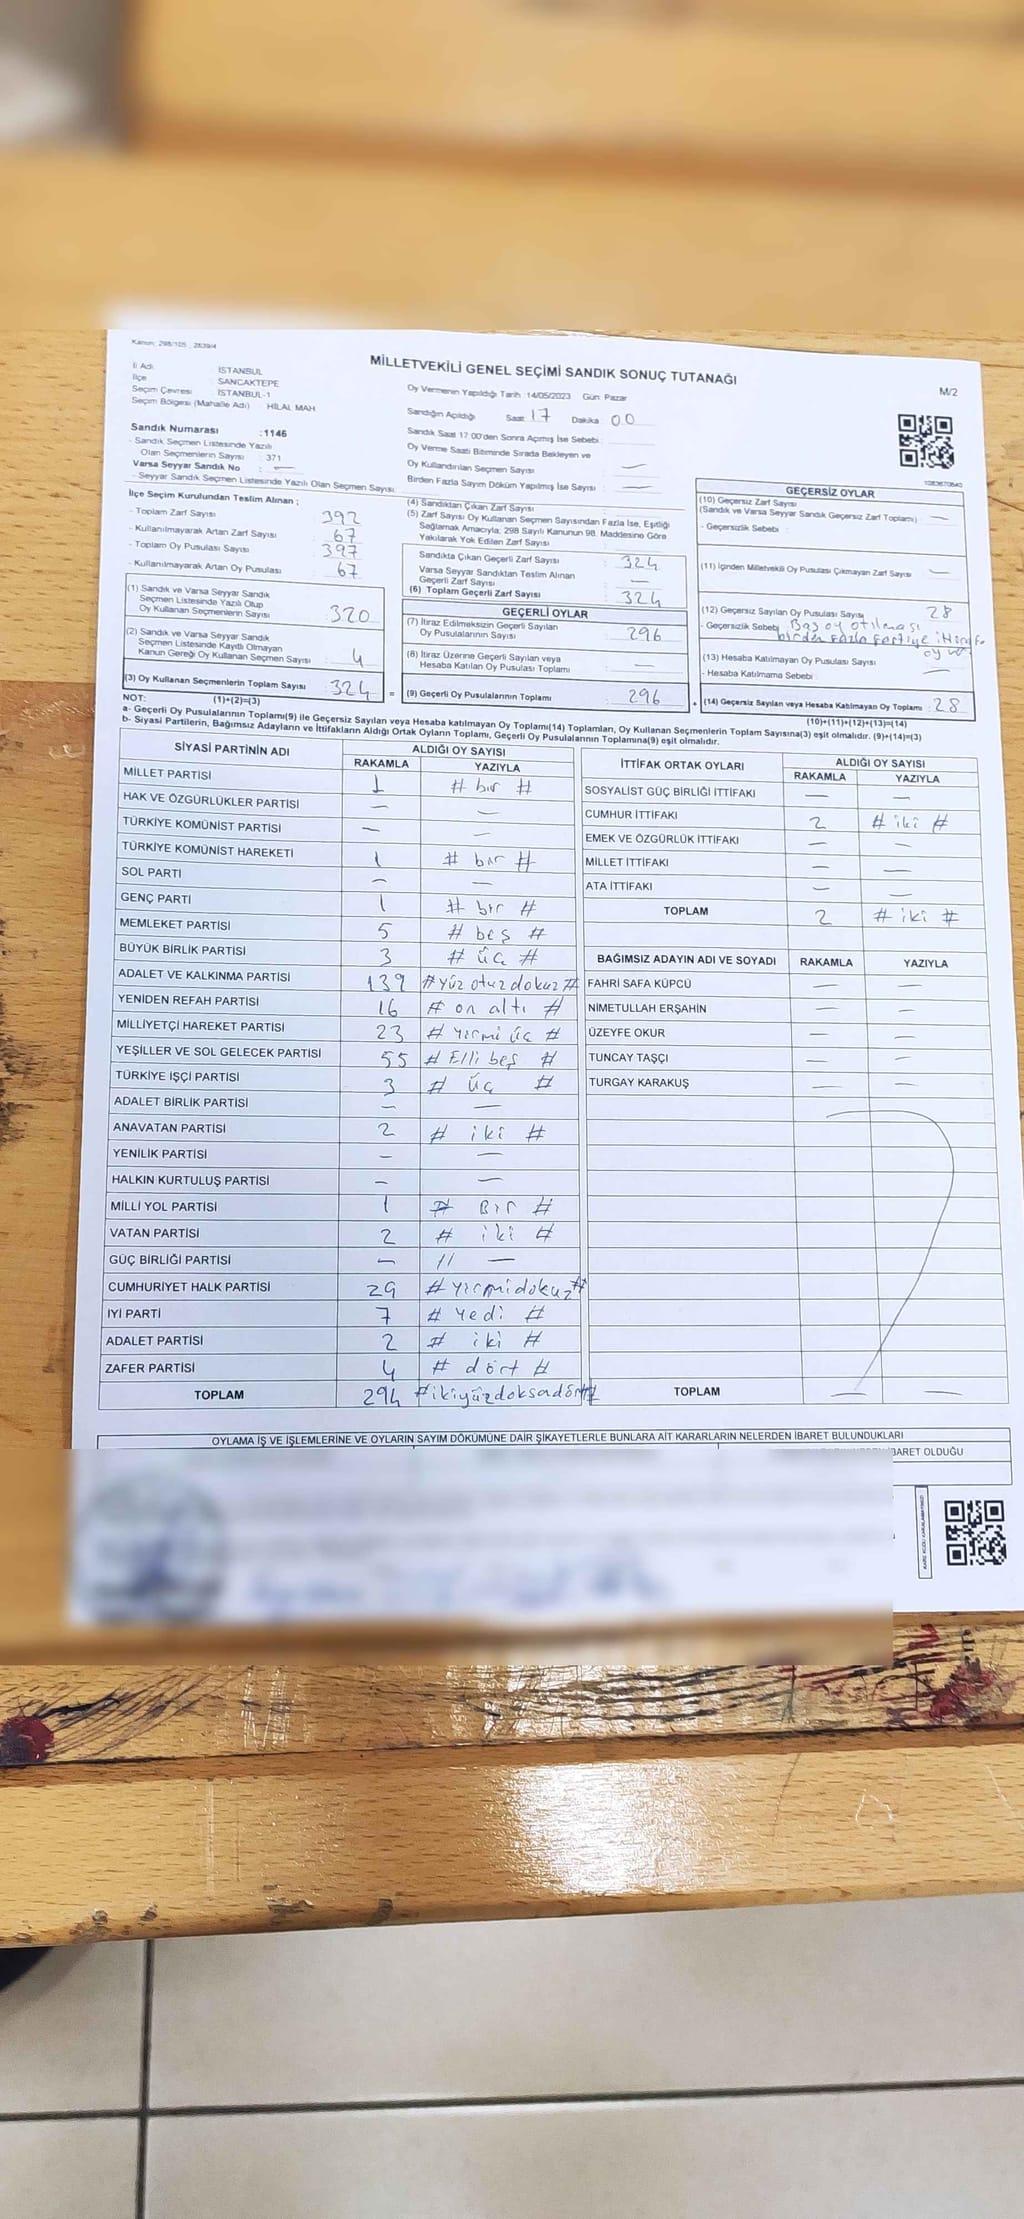 Kanun: 298/105 , 2839/4
MİLLETVEKİLİ GENEL SEÇİMİ SANDIK SONUÇ TUTANAĞI
M/2
İl Adı : İSTANBUL
İlçe : SANCAKTEPE
Seçim Çevresi : İSTANBUL-1
Seçim Bölgesi (Mahalle Adı) : HİLAL MAH
Sandık Numarası :1146
- Sandık Seçmen Listesinde Yazılı
Olan Seçmenlerin Sayısı : 371
Varsa Seyyar Sandık No : —
- Seyyar Sandık Seçmen Listesinde Yazılı Olan Seçmen Sayısı:
Oy Vermenin Yapıldığı Tarih :14/05/2023 Gün: Pazar
Sandığın Açıldığı Saat 17 Dakika 00
Sandık Saat 17:00'den Sonra Açılmış İse Sebebi :
Oy Verme Saati Bitiminde Sırada Bekleyen ve
Oy Kullandırılan Seçmen Sayısı : —
Birden Fazla Sayım Döküm Yapılmış İse Sayısı : —
İlçe Seçim Kurulundan Teslim Alınan ;
- Toplam Zarf Sayısı : 392
- Kullanılmayarak Artan Zarf Sayısı : 67
- Toplam Oy Pusulası Sayısı : 397
- Kullanılmayarak Artan Oy Pusulası : 67
(1) Sandık ve Varsa Seyyar Sandık
Seçmen Listesinde Yazılı Olup
Oy Kullanan Seçmenlerin Sayısı : 320
(2) Sandık ve Varsa Seyyar Sandık
Seçmen Listesinde Kayıtlı Olmayan
Kanun Gereği Oy Kullanan Seçmen Sayısı : 4
(3) Oy Kullanan Seçmenlerin Toplam Sayısı : 324 =
(1)+(2)=(3)
(4) Sandıktan Çıkan Zarf Sayısı :
(5) Zarf Sayısı Oy Kullanan Seçmen Sayısından Fazla İse, Eşitliği
Sağlamak Amacıyla; 298 Sayılı Kanunun 98. Maddesine Göre
Yakılarak Yok Edilen Zarf Sayısı :
Sandıkta Çıkan Geçerli Zarf Sayısı : 324
Varsa Seyyar Sandıktan Teslim Alınan
Geçerli Zarf Sayısı : —
(6) Toplam Geçerli Zarf Sayısı : 324
GEÇERLİ OYLAR
(7) İtiraz Edilmeksizin Geçerli Sayılan
Oy Pusulalarının Sayısı : 296
(8) İtiraz Üzerine Geçerli Sayılan veya
Hesaba Katılan Oy Pusulası Toplamı : —
(9) Geçerli Oy Pusulalarının Toplamı : 296 +
1083670640
GEÇERSİZ OYLAR
(10) Geçersiz Zarf Sayısı
(Sandık ve Varsa Seyyar Sandık Geçersiz Zarf Toplamı) : —
- Geçersizlik Sebebi :
(11) İçinden Milletvekili Oy Pusulası Çıkmayan Zarf Sayısı : —
(12) Geçersiz Sayılan Oy Pusulası Sayısı : 28
- Geçersizlik Sebebi : Boş oy atılması
birden fazla partiye
oy
(13) Hesaba Katılmayan Oy Pusulası Sayısı : —
- Hesaba Katılmama Sebebi :
(14) Geçersiz Sayılan veya Hesaba Katılmayan Oy Toplamı : 28
(10)+(11)+(12)+(13)=(14)
NOT:
a- Geçerli Oy Pusulalarının Toplamı(9) ile Geçersiz Sayılan veya Hesaba katılmayan Oy Toplamı(14) Toplamları, Oy Kullanan Seçmenlerin Toplam Sayısına(3) eşit olmalıdır. (9)+(14)=(3)
b- Siyasi Partilerin, Bağımsız Adayların ve İttifakların Aldığı Ortak Oyların Toplamı, Geçerli Oy Pusulalarının Toplamına(9) eşit olmalıdır.
SİYASİ PARTİNİN ADI ALDIĞI OY SAYISI
RAKAMLA YAZIYLA
MİLLET PARTİSİ 1 # bir #
HAK VE ÖZGÜRLÜKLER PARTİSİ — —
TÜRKİYE KOMÜNİST PARTİSİ — —
TÜRKİYE KOMÜNİST HAREKETİ 1 # bir #
SOL PARTİ — —
GENÇ PARTİ 1 # bir #
MEMLEKET PARTİSİ 5 # beş #
BÜYÜK BİRLİK PARTİSİ 3 # üç #
ADALET VE KALKINMA PARTİSİ 139 #yüz otuz dokuz#
YENİDEN REFAH PARTİSİ 16 # on altı #
MİLLİYETÇİ HAREKET PARTİSİ 23 # yirmi üç #
YEŞİLLER VE SOL GELECEK PARTİSİ 55 # Elli beş #
TÜRKİYE İŞÇİ PARTİSİ 3 # üç #
ADALET BİRLİK PARTİSİ — —
ANAVATAN PARTİSİ 2 # iki #
YENİLİK PARTİSİ — —
HALKIN KURTULUŞ PARTİSİ — —
MİLLİ YOL PARTİSİ 1 # Bir #
VATAN PARTİSİ 2 # iki #
GÜÇ BİRLİĞİ PARTİSİ — // —
CUMHURİYET HALK PARTİSİ 29 # yirmidokuz#
İYİ PARTİ 7 # yedi #
ADALET PARTİSİ 2 # iki #
ZAFER PARTİSİ 4 # dört #
TOPLAM 294 #ikiyüzdoksadört#
İTTİFAK ORTAK OYLARI ALDIĞI OY SAYISI
RAKAMLA YAZIYLA
SOSYALİST GÜÇ BİRLİĞİ İTTİFAKI — —
CUMHUR İTTİFAKI 2 # iki #
EMEK VE ÖZGÜRLÜK İTTİFAKI — —
MİLLET İTTİFAKI — —
ATA İTTİFAKI — —
TOPLAM 2 # iki #
BAĞIMSIZ ADAYIN ADI VE SOYADI RAKAMLA YAZIYLA
FAHRİ SAFA KÜPCÜ — —
NİMETULLAH ERŞAHİN — —
ÜZEYFE OKUR — —
TUNCAY TAŞÇI — —
TURGAY KARAKUŞ — —
TOPLAM — —
OYLAMA İŞ VE İŞLEMLERİNE VE OYLARIN SAYIM DÖKÜMÜNE DAİR ŞİKAYETLERLE BUNLARA AİT KARARLARIN NELERDEN İBARET BULUNDUKLARI
İBARET OLDUĞU